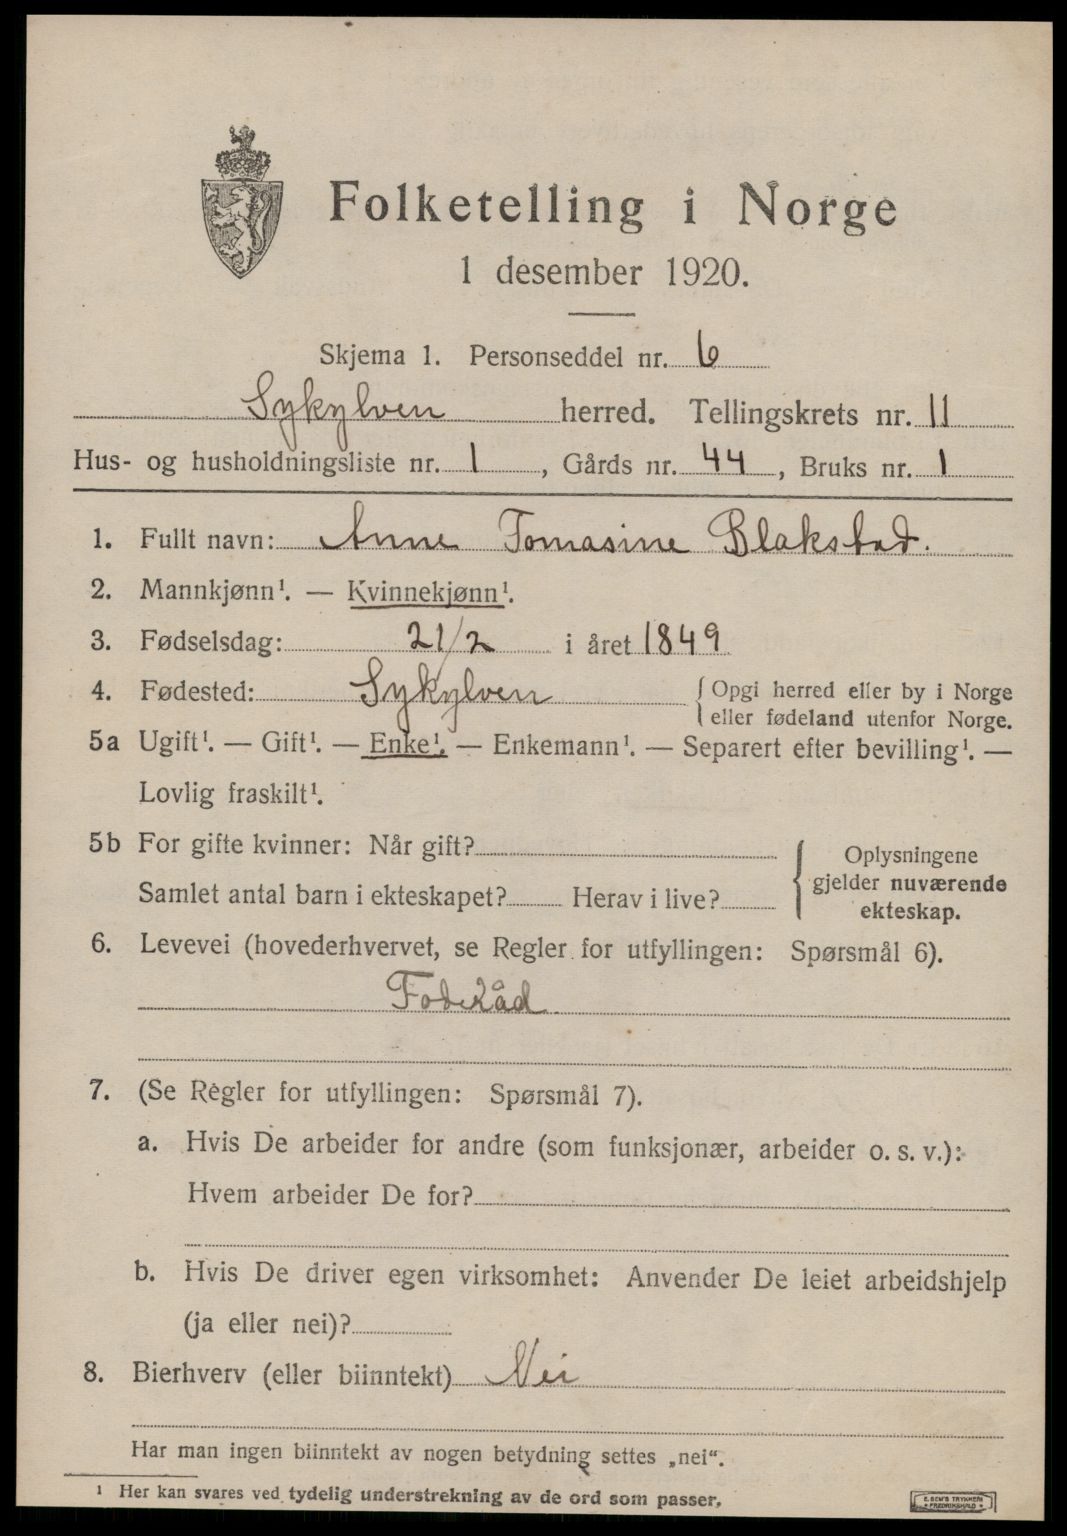 Folketelling i Norge
1 desember 1920.
Skjema 1. Personseddel nr. 6
Sykylven herred. Tellingskrets nr. 11
Hus- og husholdningsliste nr. 1, Gårds nr. 44, Bruks nr. 1
1. Fullt navn: Anne Tomasine Blakstad.
2. Mannkjønn¹. — Kvinnekjønn¹.
3. Fødselsdag: 21/2 i året 1849
4. Fødested: Sykylven { Opgi herred eller by i Norge
eller fødeland utenfor Norge.
5a Ugift¹. — Gift¹. — Enke¹. — Enkemann¹. — Separert efter bevilling¹. —
Lovlig fraskilt¹.
5b For gifte kvinner: Når gift?
Samlet antal barn i ekteskapet? Herav i live?
{ Oplysningene
gjelder nuværende
ekteskap.
6. Levevei (hovederhvervet, se Regler for utfyllingen: Spørsmål 6).
Foderåd
7. (Se Regler for utfyllingen: Spørsmål 7).
a. Hvis De arbeider for andre (som funksjonær, arbeider o. s. v.):
Hvem arbeider De for?
b. Hvis De driver egen virksomhet: Anvender De leiet arbeidshjelp
(ja eller nei)?
8. Bierhverv (eller biinntekt) Nei
Har man ingen biinntekt av nogen betydning settes „nei“.
¹ Her kan svares ved tydelig understrekning av de ord som passer.
E. SEM'S TRYKKERI
FREDRIKSHALD